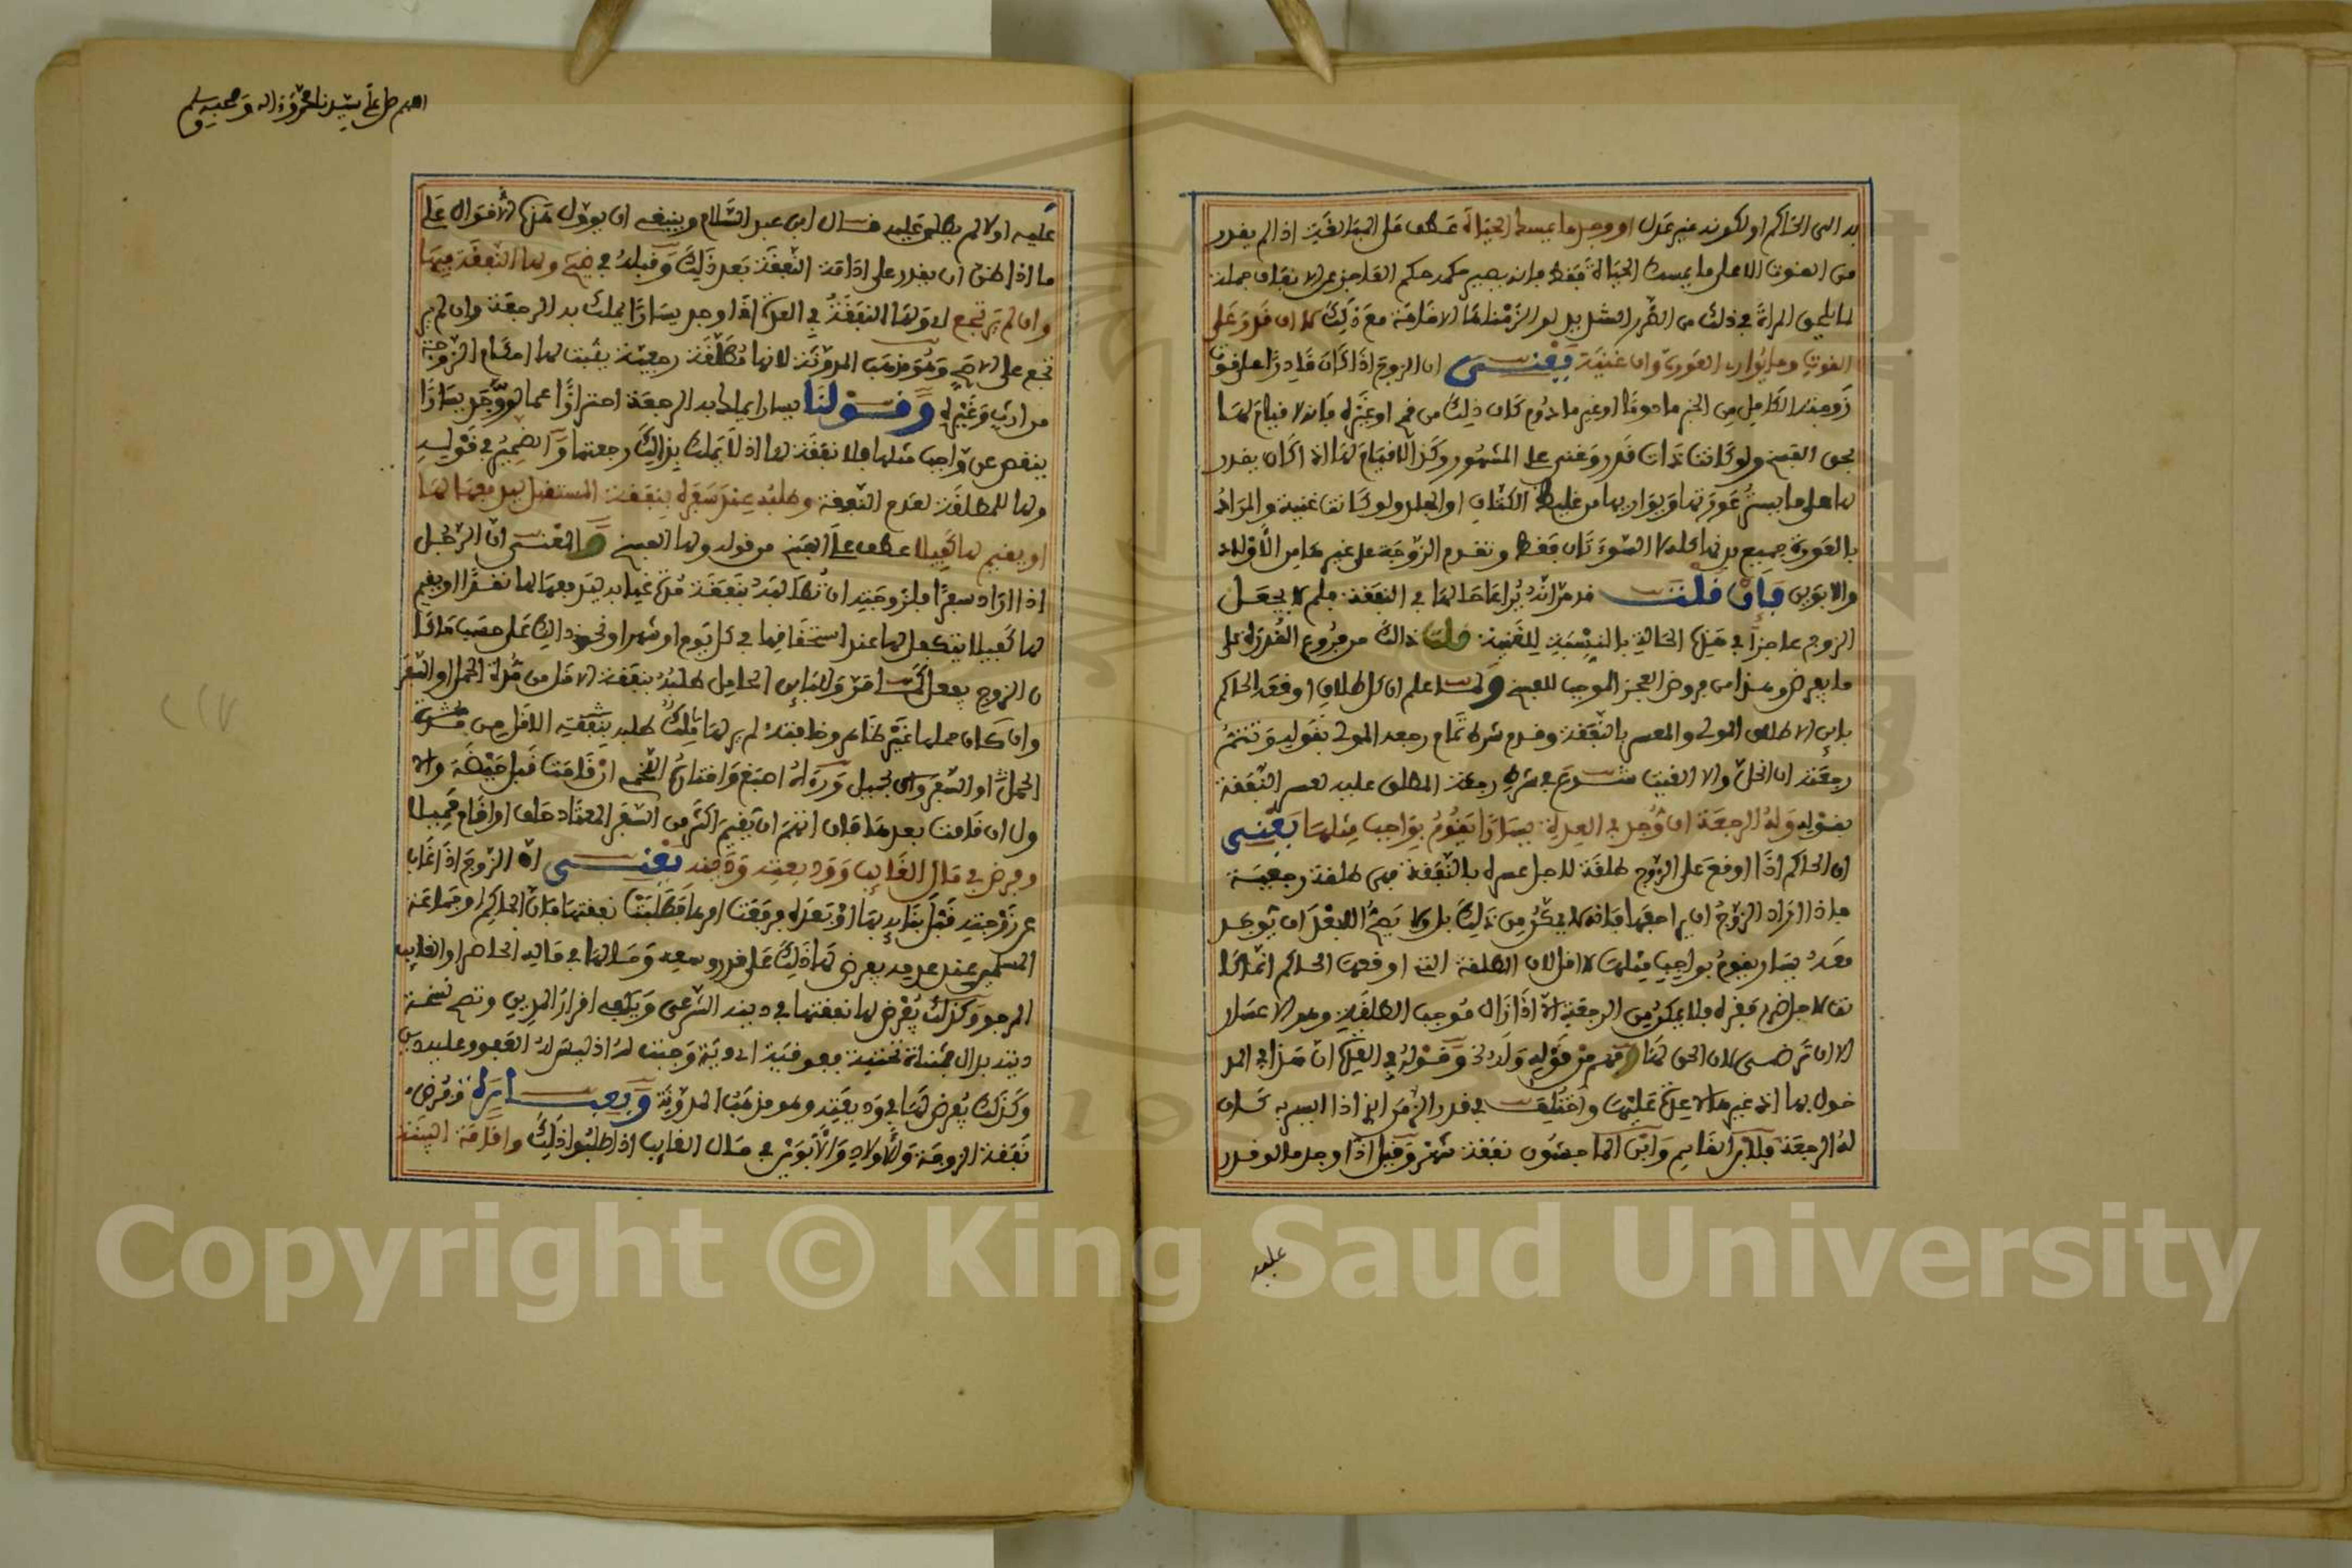 به الى الحاكم او لكونه غير عدل او وجد ما يمسك الحياة عطف على المبالغة اذا لم يقدر
من القوت الا على ما يمسك الحياة فقط فانه يصير حكمه حكم العاجز عن الانفاق جملة
لما يلحق المراة في ذلك من الضرر الشديد لو الزمناها الاقامة مع ذلك لا ان قدر على
القوت وما يوارى العورة وان غنية يعنى ان الزوج اذا كان قادرا على قوت
زوجته الكامل من الخبز مادوما او غير مادوم كان ذلك من قمح او غيره فانه لا قيام لها
بحق الفسخ ولو كانت ذات قدر وغنى على المشهور وكذا لا قيام لها اذا كان يقدر
لها على ما يستر عورتها ويواريها من غليظ الكتان او الجلد ولو كانت غنية والمراد
بالعورة جميع بدنها كله لا السوءتان فقط وتقدم الزوجة على غيرها من الاولاد
والابوين فان قلت قد مر انه يراعا حالها في النفقة فلم لا يجعل
الزوج عاجزا في هذه الحالة بالنسبة للغنية قلت ذالك من فروع القدرة على
ما يفرض وهذا من فروض العجز الموجب للفسخ ولما علم ان كل طلاق اوقعه الحاكم
باين الا طلاق المولى والمعسر بالنفقة وقدم شرط تمام رجعة المولى بقوله وتتم
رجعته ان انحل والا الغيت شرع في شرط رجعة المطلق عليه لعسر النفقة
بقوله وله الرجعة ان وجد في العدة يسارا يقوم بواجب مثلها يعنى
ان الحاكم اذا اوقع على الزوج طلقة لاجل عسره بالنفقة فهى طلقة رجعية
فاذا اراد الزوج ان يراجعها فانه لا يمكن من ذلك بل ولا يصح الا بعد ان يوجد
معه يسار يقوم بواجب مثلها لا اقل لان الطلقة التى اوقعها الحاكم انما كا
نت لاجل ضرر فقره فلا يمكن من الرجعة الا اذا زال موجب الطلقة وهو الاعسار
الا ان ترضى لان الحق لها وفهم من قوله وله وقوله في العدة ان هذا في المد
خول بها اذ غيرها لا عدة عليها واختلف في قدر الزمن الذى اذا ايسر به كان
له الرجعة فلابن القاسم وابن الماجشون نفقة شهر وقيل اذا وجد ما لو قدر
عليه
اللهم صل على سيدنا محمد واله وصحبه وسلم
عليه اولا لم يطلق عليه قال ابن عبد السلام وينبغى ان يوول هذه الاقوال على
ما اذا ظن ان يقدر على ادامة النفقة بعد ذلك وقبله في ضيح ولها النفقة فيها
وان لم يرتجع اى ولها النفقة في العدة اذا وجد يسارا يملك به الرجعة وان لم ير
تجع على الاصح وهو مذهب المدونة لانها مطلقة رجعية يثبت لها احكام الزوجة
من ارث وغيره وقولنا يسارا يملك به الرجعة احترازا عما لو وجد يسارا
ينقص عن واجب مثلها فلا نفقة لها اذ لا يملك بذالك رجعتها والضمير في قوله
ولها للمطلقة لعدم النفقة وطلبه عند سفره بنفقة المستقبل ليدفعها لها
او يقيم لها كفيلا عطف على الفسخ من قوله ولها الفسخ والمعنى ان الرجل
اذا اراد سفرا فلزوجته ان تطالبه بنفقة مدة غيابه ليدفعها لها نقدا او يقيم
لها كفيلا يتكفل لها عند استحقاقها في كل يوم او شهر او نحو ذالك على حسب ما كا
ن الزوج يفعل كما مر وللباين الحامل طلبه بنفقة الاقل من مدة الحمل او السفر
وان كان حملها غير ظاهر وخافته لم ير لها مالك طلبه بنفقة الاقل من مدة
الحمل او السفر وراى لحبيل وراه اصبغ واختاره اللخمى ان قامت قبل حيضة والا
ولا ان قامت بعدها فان اتهم ان يقيم اكثر من السفر المعتاد حلف او اقام حميلا
وفرض في مال الغايب ووديعته ودينه يعنى ان الزوج اذا غاب
عن زوجته قبل بنايه بها او بعده فرفعت امرها فطلبت نفقتها فان الحاكم او جماعة
المسلمين عند عدمه يفرض لها ذلك على قدر وسعه وحالها في ماله الحاضر او الغايب
المرجو وكذلك يفرض لها نفقتها في دينه الشرعى ويكفى اقرار المدين وتصح نسخة
وكذلك يفرض لها في وديعته وهو مذهب المدونة
نفقة الزوجة والاولاد والابوين في مال الغايب اذا طلبوا ذلك واقامة البينة